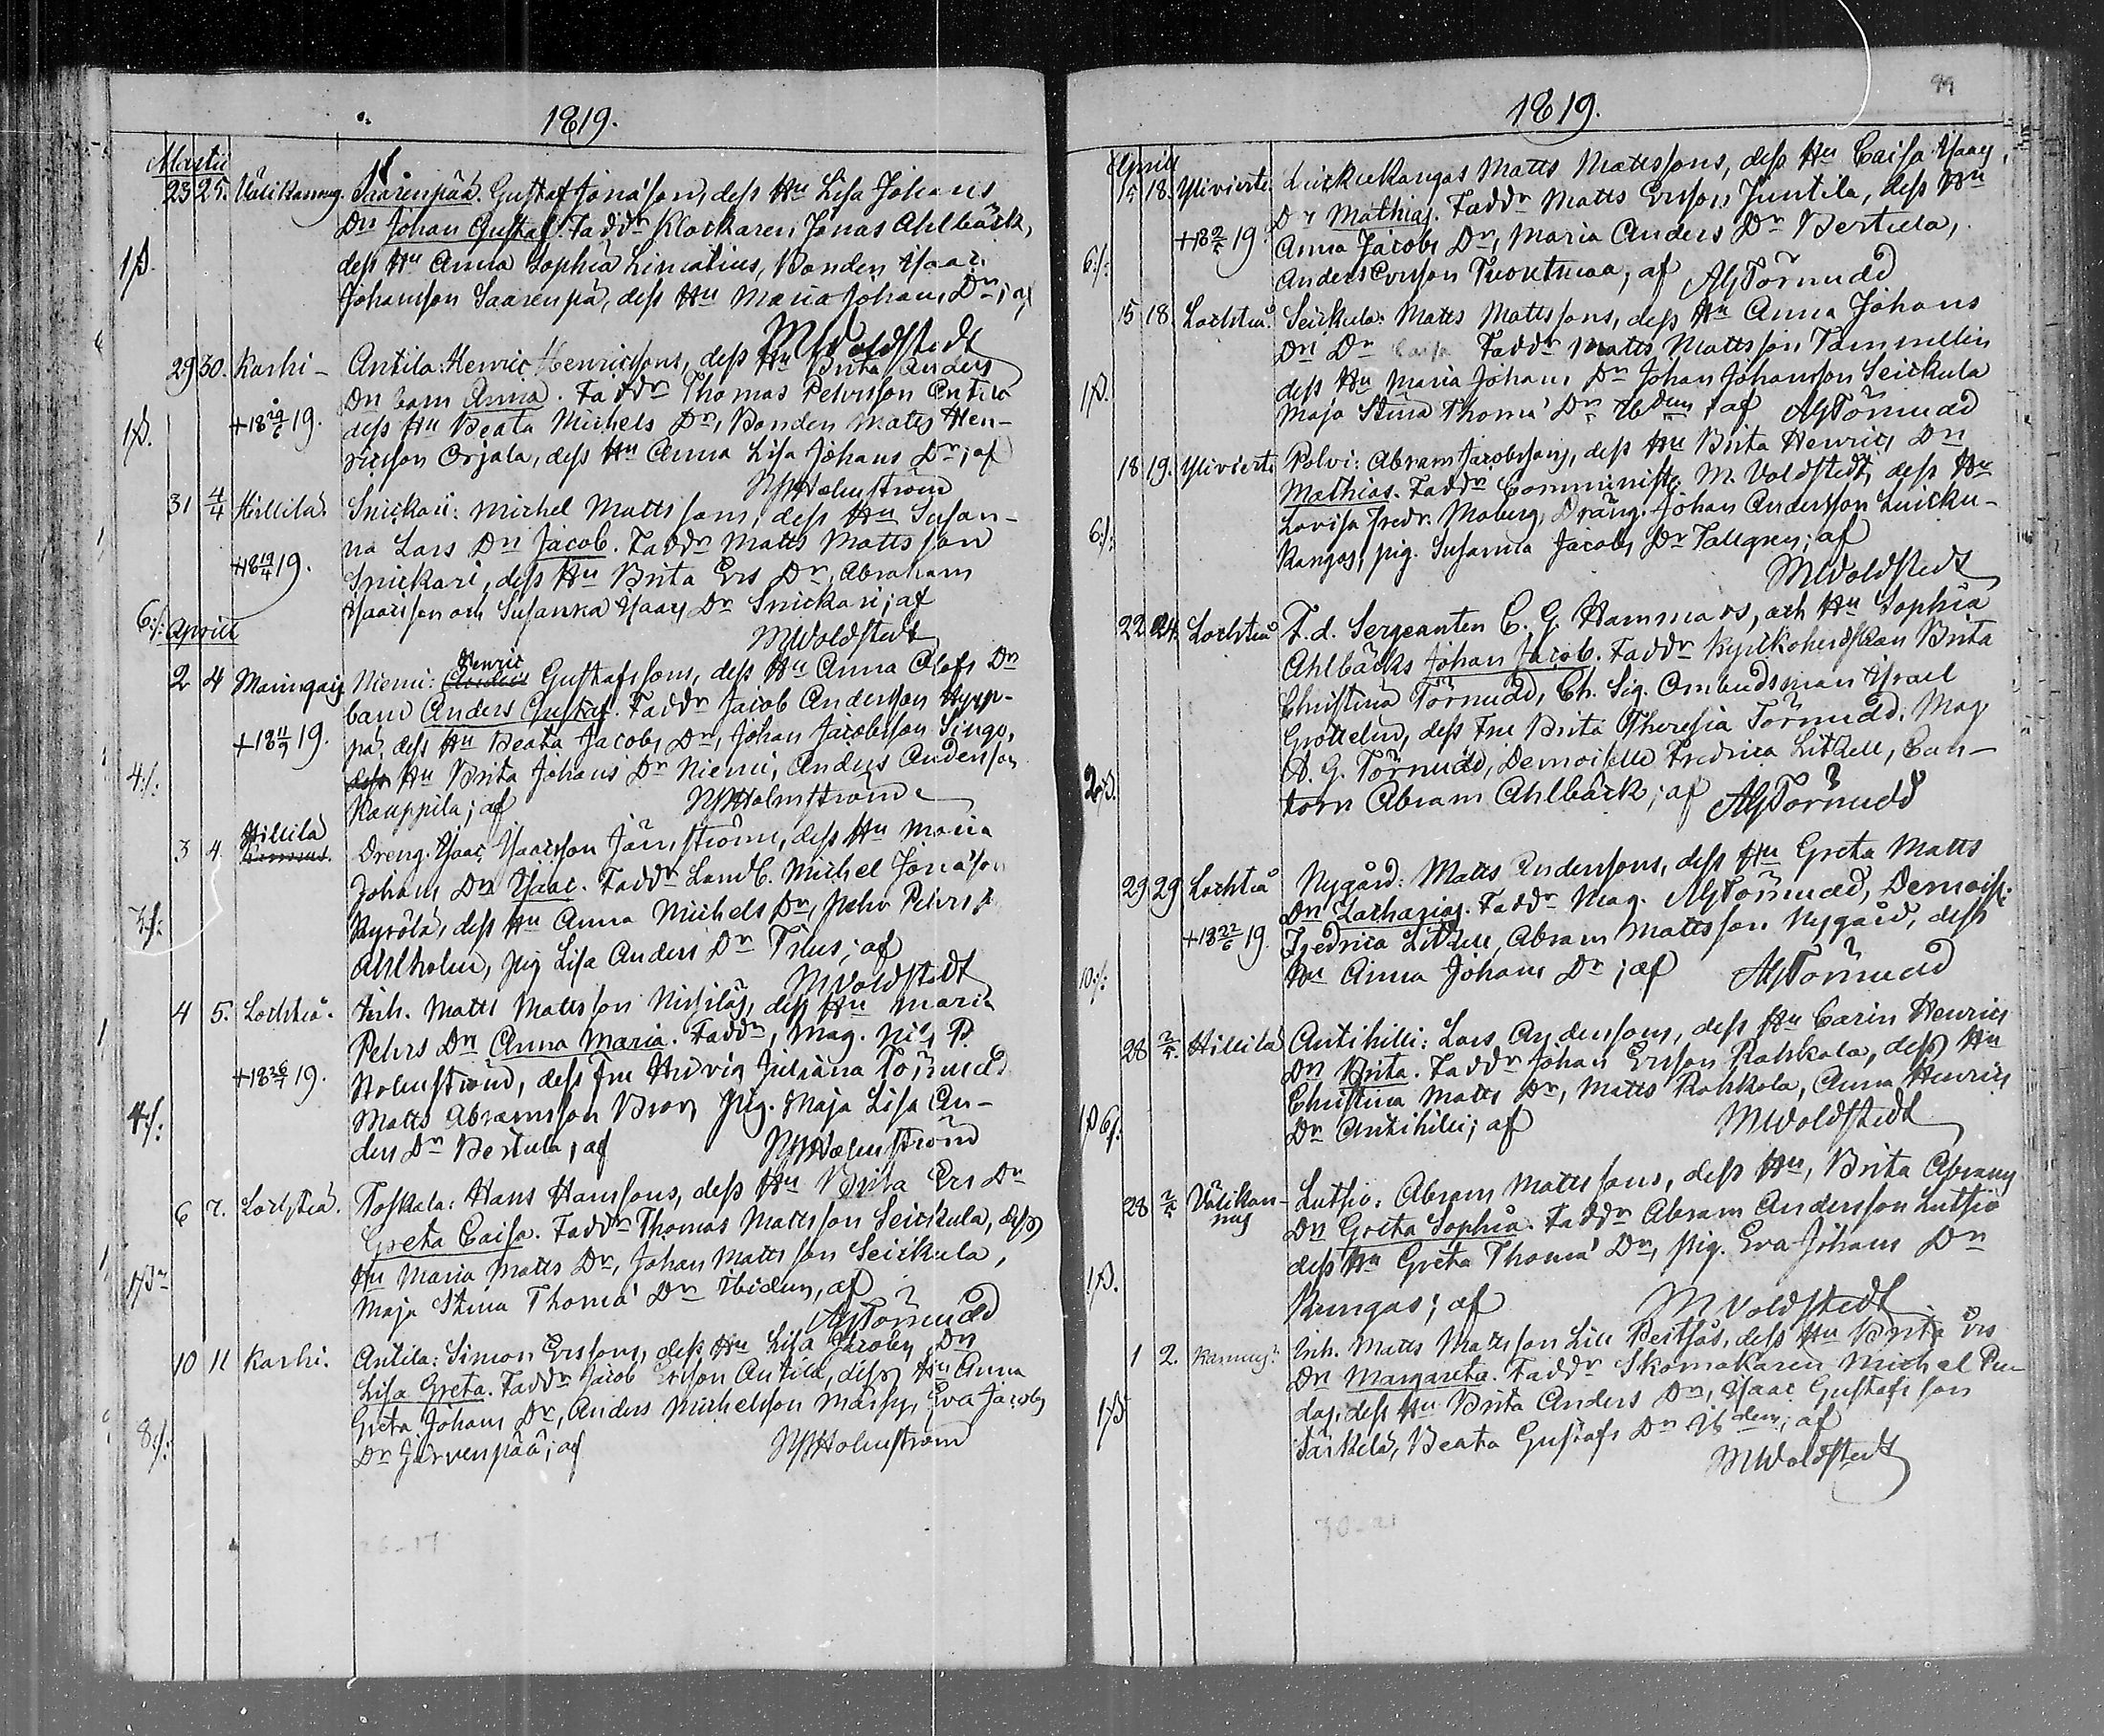 1819.
Martii
23 25. Välikannug. Saarenpää. Gustaf Jonæson, dess Hu Lisa Johans
Dr Johan Gustaf. Faddr Klockaren Jonas Ahlbäck,
1β. dess Hu Anna Sophia Limatius, Bonden Isaac
Johansson Saarenpä, dess Hu Maria Johans Dr; af
MWoldstedt
29 30. Karhi- Antila: Henric Henricssons, dess Hu Brita Anders
Dr barn Anna. Faddr Thomas Pehrsson Antila
1β. +18 29/6 19. dess Hu Beata Michels Dr, Bonden Matts Hen-
ricsson Orjala, dess Hu Anna Lisa Johans Dr; af
NPHolmström
31 4/4 Hillilä Snickari: Michel Mattssons, dess Hu Susan-
na Lars Dr Jacob. Faddr Matts Mattsson
+18 19/4 19. Snickari, dess Hu Brita Ers Dr, Abraham
Isaacsson och Susanna Isaacs Dr Snickari; af
6:/: Aprill
MWoldstedt
2 4 Maringais Niemi: Anders Henric Gustafssons, dess Hu Anna Olofs Dr
barn Anders Gustaf. Faddr Jacob Andersson Hypp-
+18 11/7 19. pä, dess Hu Beata Jacobs Dr, Johan Jacobsson Singo,
4:/: dess Hu Brita Johans Dr Niemi, Anders Andersson
Kauppila; af NPHolmström
Hillilä
3 4. Dreng. Isaac Isaacsson Järnström, dess Hu Maria
Johans Dr Isaac. Faddr Landb. Michel Jonæson
3:/: Kyrölä, dess Hu Anna Michels Dr, Pehr Pehrss
Ahlholm, pig Lisa Anders Dr Tilus; af
MWoldstedt
4 5. Lochteå. Inh. Matts Mattsson Nissiläs, dess Hu Maria
Pehrs Dr Anna Maria. Faddr, Mag. Nils P.
+18 26/7 19. Holmström, dess Fru Hedvig Juliana Törnudd
4:/: Matts Abramsson Brors Pig. Maja Lisa An-
ders Dr Bertula; af NPHolmström
6 7. Lochteå. Toskala: Hans Hanssons, dess Hu Brita Ers Dr
Greta Caisa. Faddr Thomas Mattsson Seickula, dess
1β Hu Maria Matts Dr, Johan Mattsson Seickula,
Maja Stina Thomæ Dr Ibidem, af
AGTörnudd
10 11 Karhi. Antila: Simon Erssons, dess Hu Lisa Jacobs Dr
Lisa Greta. Faddr Jacob Ersson Antila, dess Hu Anna
Greta Johans Dr, Anders Michelsson Märsy, Eva Jacobs
8:/: Dr Järvenpää; af NPHolmström
26-17
99
1819.
Aprill
15 18. Ylivierti Luickukangas Matts Mattssons, dess Hu Caisa Isaacs
Dr Mathias. Faddr Matts Ersson Juntila, dess Hu
+18 2/5 19. Anna Jacobs Dr, Maria Anders Dr Bertula,
6:/: Anders Ersson Tuoutmaa, af AGTörnudd
15 18 Lochteå. Seickula: Matts Mattssons, dess Hu Anna Johans
Dr Dr Caisa Faddr Matts Mattsson Tammelin
1β. dess Hu Maria Johans Dr Johan Johansson Seickula
Maja Stina Thomæ Dr Ibdem; af AGTörnudd
18 19. Ylivierti Polvi: Abram Jacobssons, dess Hu Brita Henrics Dr
Mathias. Faddr Comministr M. Woldstedt, dess Hu
6:/: Lovisa Fredr. Moberg, Dräng. Johan Andersson Luicku-
kangas, pig. Susanna Jacobs Dr Tallgren; af
MWoldstedt
22 24. Lochteå F. d. Sergeanten C. G. Hammars, och Hu Sophia
Ahlbäcks Johan Jacob. Faddr Kyrkoherdskan Brita
Christina Törnudd, Ch. Sig. Ombudsman Israel
Grottelin, dess Fru Brita Theresia Törnudd, Mag
2β. A. G. Törnudd, Demoiselle Fredrica Litzell, Can-
torn Abram Ahlbäck; af AGTörnudd
29 29 Lochteå Nygård: Matts Anderssons, dess Hu Greta Matts
Dr Zacharias. Faddr Mag. AGTörnudd, Demois.
+18 22/6 19. Fredrica Litzell, Abram Mattsson Nygård, dess
10:/: Hu Anna Johans Dr; af AGTörnudd
28 2/5. Hillilä Antihilli: Lars Anderssons, dess Hu Carin Henrics
Dr Brita. Faddr Johan Ersson Rahkola, dess Hu
Christina Matts Dr, Matts Rahkola, Anna Henrics
1β 6/: Dr Antihilli; af MWoldstedt
28 2/5 Välikan-
nus Lutsio: Abram Mattssons, dess Hu, Brita Abrams
Dr Greta Sophia. Faddr Abram Andersson Lutsio
1β. dess Hu Greta Thomæ Dr, pig. Eva Johans Dr
Kungas; af MWoldstedt
1 2. Kannus: Inh. Matts Mattsson Lill Peitsös, dess Hu Brita Ers
Dr Margareta. Faddr Skomakaren Michel Pu-
1β das, dess Hu Brita Anders Dr, Isaac Gustafsson
Särkelä, Beata Gustafs Dr Ibdem; af
MWoldstedt
70-21